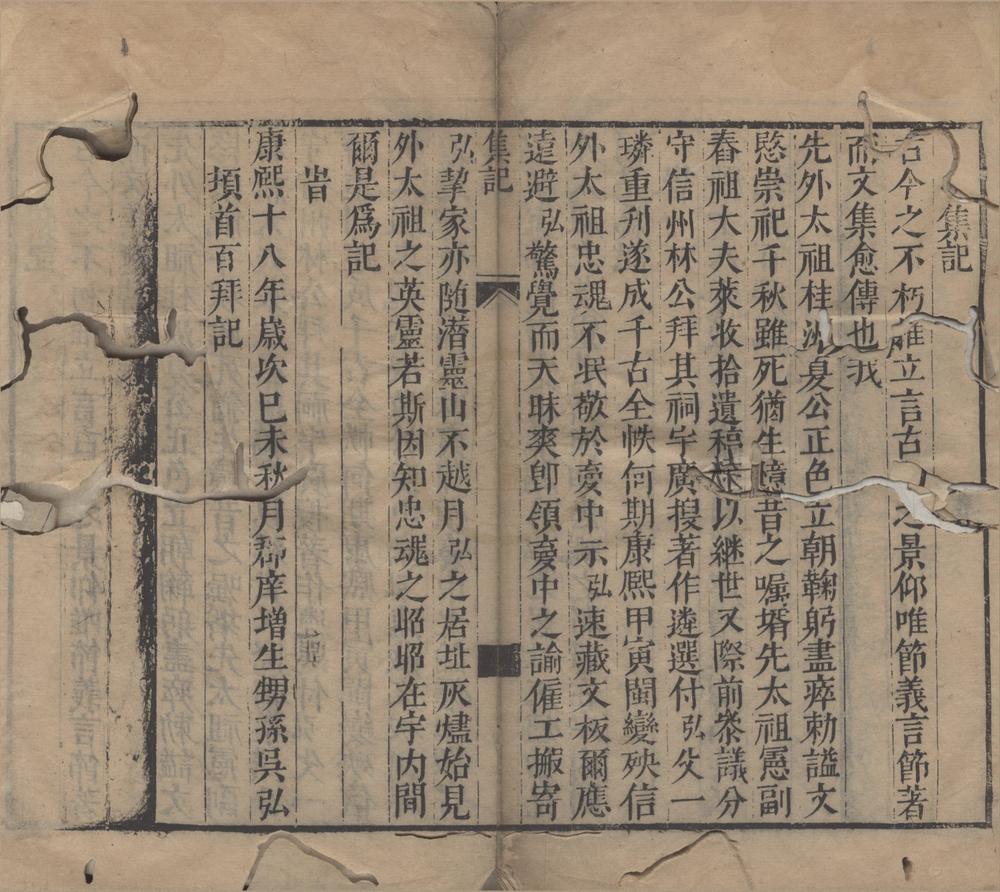 集記
今之不朽惟立言古人之景仰唯節義言節著
而文集愈傳也我
先外太祖桂洲夏公正色立朝鞠躬盡瘁勅謚文
愍崇祀千秋雖死猶生憶昔之嘱壻先太祖愿副
春祖大夫萊收拾遺稿梓以継世又際前叅議分
守信州林公拜其祠宇廣搜著作遴選付弘父一
璘重刋遂成千古全帙何期康熈甲寅閩變殃信
外太祖忠魂不泯敬於夣中示弘速藏文板爾應
遠避弘驚覺而天昧爽卽領夣中之諭僱工搬寄
集記
弘挈家亦随潜靈山不越月弘之居址灰燼始見
外太祖之英靈若斯因知忠魂之昭昭在宇内間
爾是爲記
旹
康熈十八年歳次巳未秋月郡庠增生甥孫呉弘
頊首百拜記